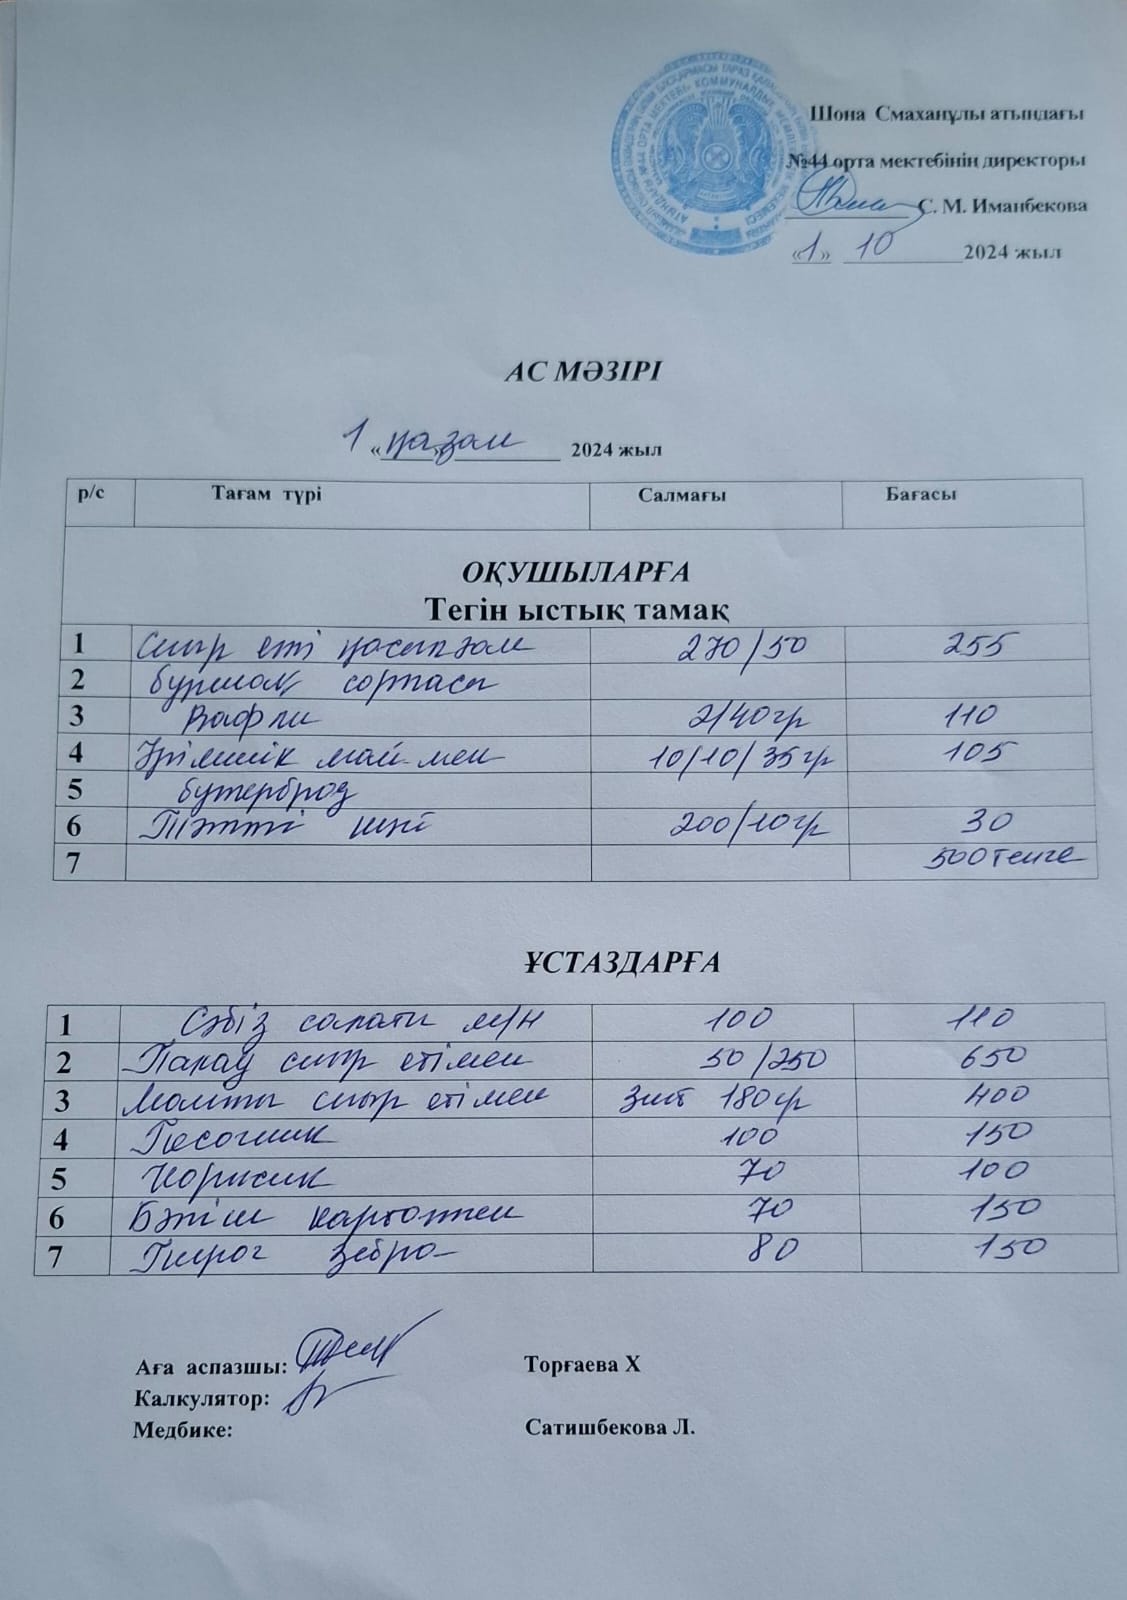 Шона Смаханұлы атындағы
№44 орта мектебінің директоры
С. М. Иманбекова
«1» 10 2024 жыл
АС МӘЗІРІ
1 «қазан» 2024 жыл
р/с Тағам түрі Салмағы Бағасы
ОҚУШЫЛАРҒА
Тегін ыстық тамақ
1 Сиыр еті қосылған 270/50 255
2 бұршақ сорпасы
3 Вафли 2/40гр 110
4 Ірімшік май-мен 10/10/35гр 105
5 бутерброд
6 Тәтті шәй 200/10гр 30
7 500 теңге
ҰСТАЗДАРҒА
1 Сәбіз салаты м/н 100 110
2 Палау сиыр етімен 50/250 650
3 Манты сиыр етімен 3шт 180гр 400
4 Песочник 100 150
5 Коржик 70 100
6 Бәліш картоппен 70 150
7 Пирог зебра 80 150
Аға аспазшы: Торғаева Х
Калкулятор:
Медбике: Сатишбекова Л.